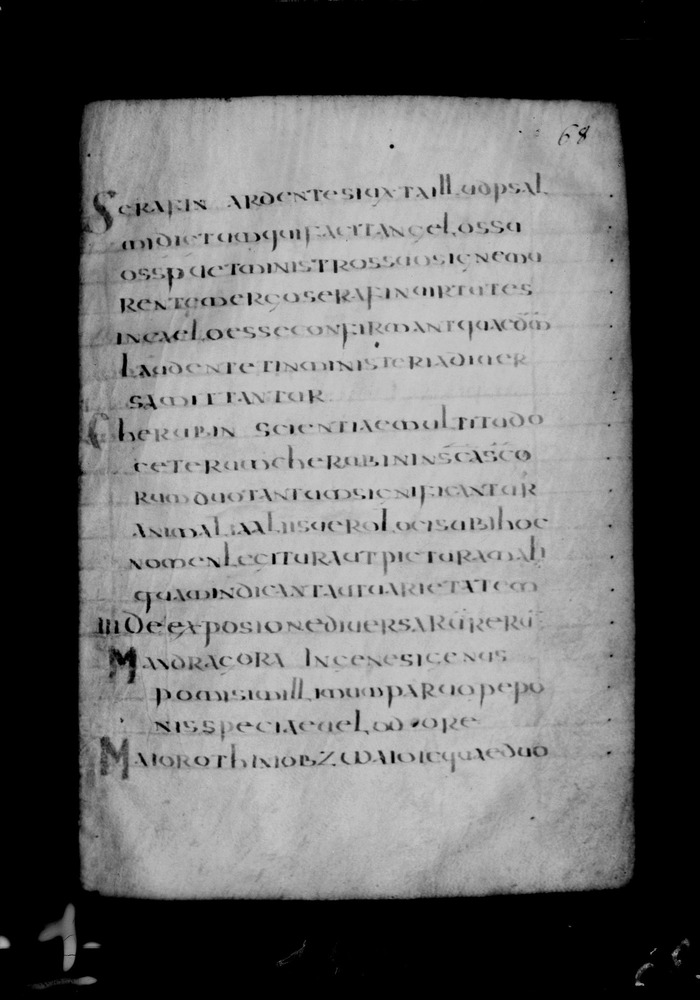 68
SERAFIN ARDENTESIUXTAILLUDPSAL
MIDICTUMQUIFACITANGELOSSU
OSSPUETMINISTROSSUOSIGNEMU
RENTEMERGOSERAFINUIRTUTES
INCAELOESSECONFIRMANTQUAEDM̄
LAUDENTETINMINISTERIADIUER
SAMITTANTUR
CHERUBIN SCIENTIAEMULTITUDO
CETERUMCHERUBININSC̄ASC̄O
RUMDUOTANTUMSIGNIFICANTUR
ANIMALIAALIISUEROLOCISUBIHOC
NOMENLEGITURAUTPICTURAMALI
QUAMINDICANTAUTUARIETATEM
III DEEXPOSIONEDIUERSARŪRERŪ
MANDRAGORA INGENESIGENUS
POMISIMILLIMUMPARUOPEPO
NISSPECIAEUELODORE
MAIOROTHINIOBZMAIOIEQUAEDUO